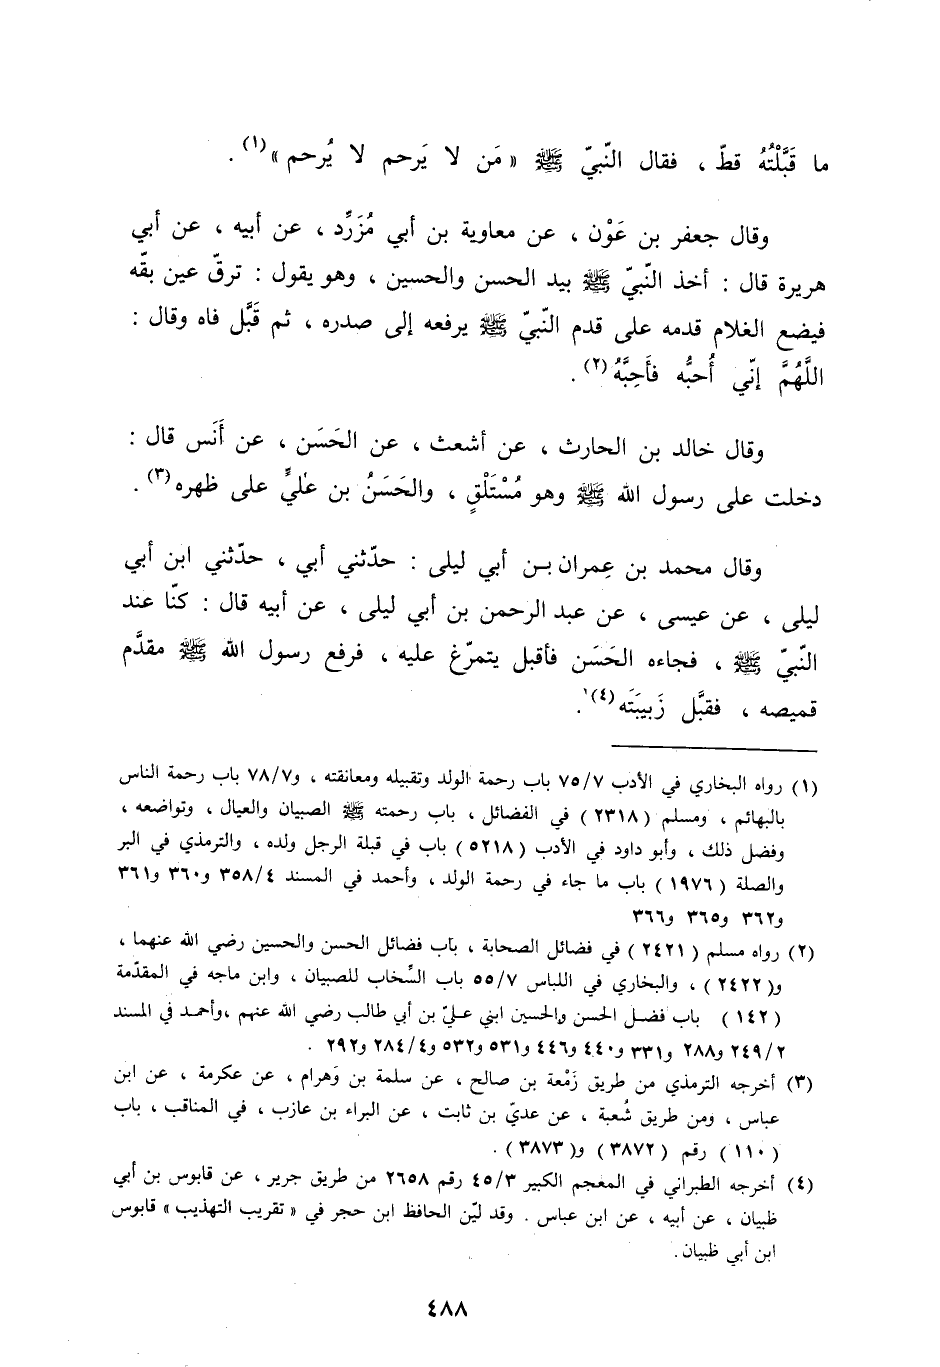 ما قَبَّلْتُهُ قطّ ، فقال النّبيّ ﷺ « مَن لا يَرحم لا يُرحم »(١) .
وقال جعفر بن عَوْن ، عن معاوية بن أبي مُزَرِّد ، عن أبيه ، عن أبي
هريرة قال : أخذ النّبيّ ﷺ بيد الحسن والحسين ، وهو يقول : ترقّ عين بقّه
فيضع الغلام قدمه على قدم النّبيّ ﷺ يرفعه إلى صدره ، ثم قَبَّل فاه وقال :
اللَّهُمَّ إنّي أُحبُّه فأَحِبَّهُ(٢) .
وقال خالد بن الحارث ، عن أشعث ، عن الحَسَن ، عن أَنَس قال :
دخلت على رسول الله ﷺ وهو مُسْتَلْقٍ ، والحَسَنُ بن عليٍّ على ظهره(٣) .
وقال محمد بن عِمران بن أبي ليلى : حدّثني أبي ، حدّثني ابن أبي
ليلى ، عن عيسى ، عن عبد الرحمن بن أبي ليلى ، عن أبيه قال : كنّا عند
النّبيّ ﷺ ، فجاءه الحَسَن فأقبل يتمرّغ عليه ، فرفع رسول الله ﷺ مقدَّم
قميصه ، فقبَّل زَبيبَتَه(٤) .
(١) رواه البخاري في الأدب ٧٥/٧ باب رحمة الولد وتقبيله ومعانقته ، و٧٨/٧ باب رحمة الناس
بالبهائم ، ومسلم ( ٢٣١٨ ) في الفضائل ، باب رحمته ﷺ الصبيان والعيال ، وتواضعه ،
وفضل ذلك ، وأبو داود في الأدب ( ٥٢١٨ ) باب في قبلة الرجل ولده ، والترمذي في البر
والصلة ( ١٩٧٦ ) باب ما جاء في رحمة الولد ، وأحمد في المسند ٣٥٨/٤ و٣٦٠ و٣٦١
و٣٦٢ و٣٦٥ و٣٦٦
(٢) رواه مسلم ( ٢٤٢١ ) في فضائل الصحابة ، باب فضائل الحسن والحسين رضي الله عنهما ،
و( ٢٤٢٢ ) ، والبخاري في اللباس ٥٥/٧ باب السِّخاب للصبيان ، وابن ماجه في المقدّمة
( ١٤٢ ) باب فضل الحسن والحسين ابني عليّ بن أبي طالب رضي الله عنهم ،وأحمد في المسند
٢٤٩/٢ و٢٨٨ و٣٣١ و٤٤٠ و٤٤٦ و٥٣١ و٥٣٢ و٢٨٤/٤ و٢٩٢ .
(٣) أخرجه الترمذي من طريق زَمْعة بن صالح ، عن سلمة بن وَهرام ، عن عكرمة ، عن ابن
عباس ، ومن طريق شُعبة ، عن عديّ بن ثابت ، عن البراء بن عازب ، في المناقب ، باب
( ١١٠ ) رقم ( ٣٨٧٢ ) و( ٣٨٧٣ ) .
(٤) أخرجه الطبراني في المعجم الكبير ٤٥/٣ رقم ٢٦٥٨ من طريق جرير ، عن قابوس بن أبي
ظبيان ، عن أبيه ، عن ابن عباس . وقد ليّن الحافظ ابن حجر في « تقريب التهذيب » قابوس
ابن أبي ظبيان .
٤٨٨